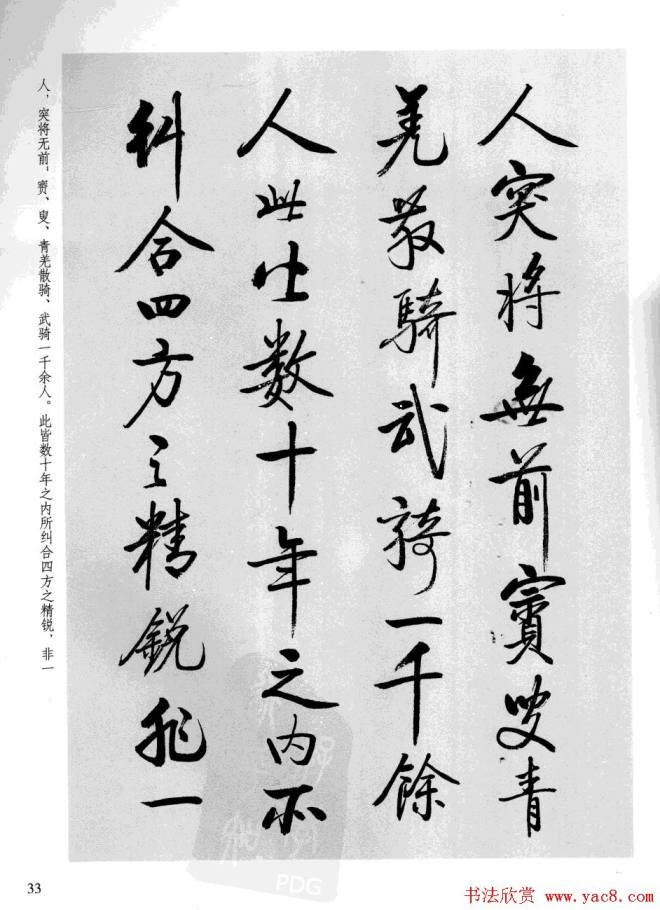 人突将無前賨叟青
羌散騎武騎一千餘
人此皆数十年之内所
糾合四方之精鋭非一
人，突将无前，賨、叟、青羌散骑、武骑一千余人。此皆数十年之内所纠合四方之精锐，非一
33
PDG
书法欣赏 www.yac8.com